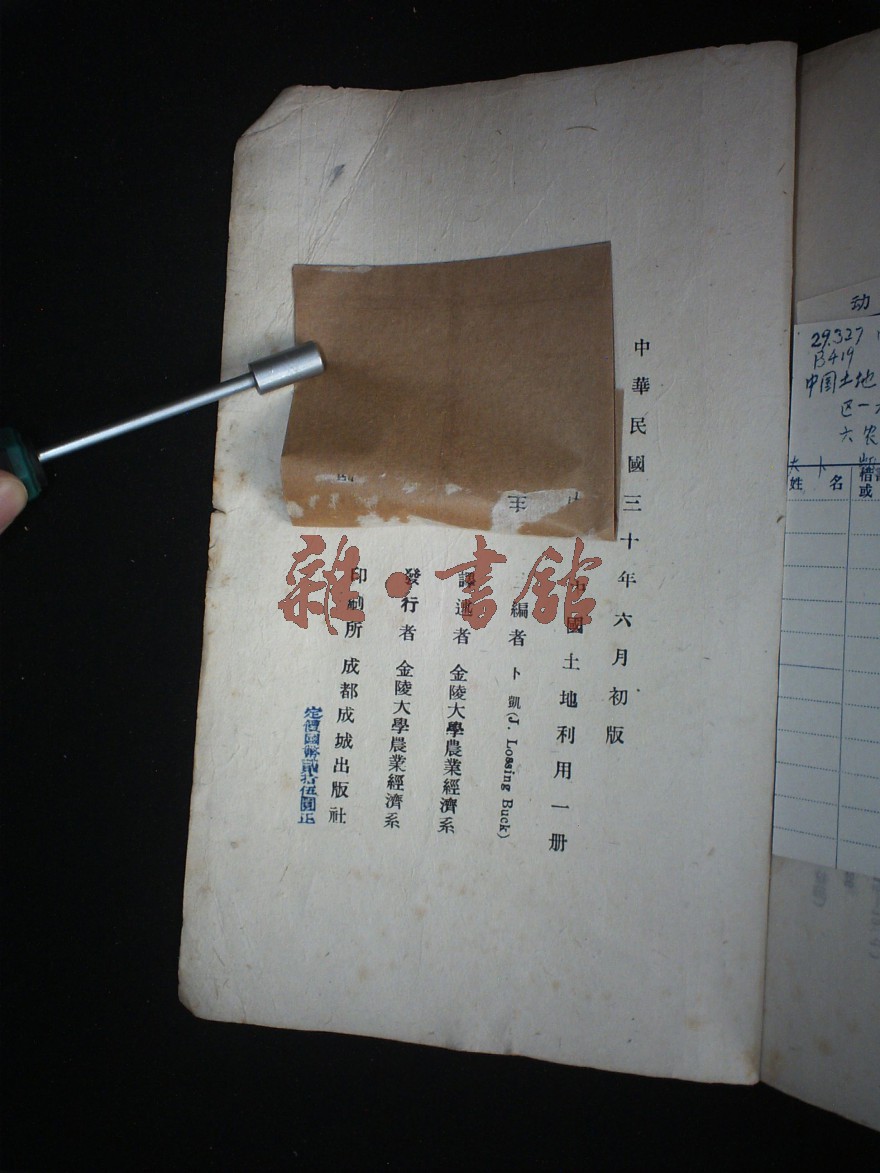 中華民國三十年六月初版
中國土地利用一册
主編者 卜凱(J. Lossing Buck)
譯述者 金陵大學農業經濟系
發行者 金陵大學農業經濟系
印刷所 成都成城出版社
定價國幣貳拾伍圓正
雜·書館
动
29.327
B419
中国土地
区一
六农
姓名
或